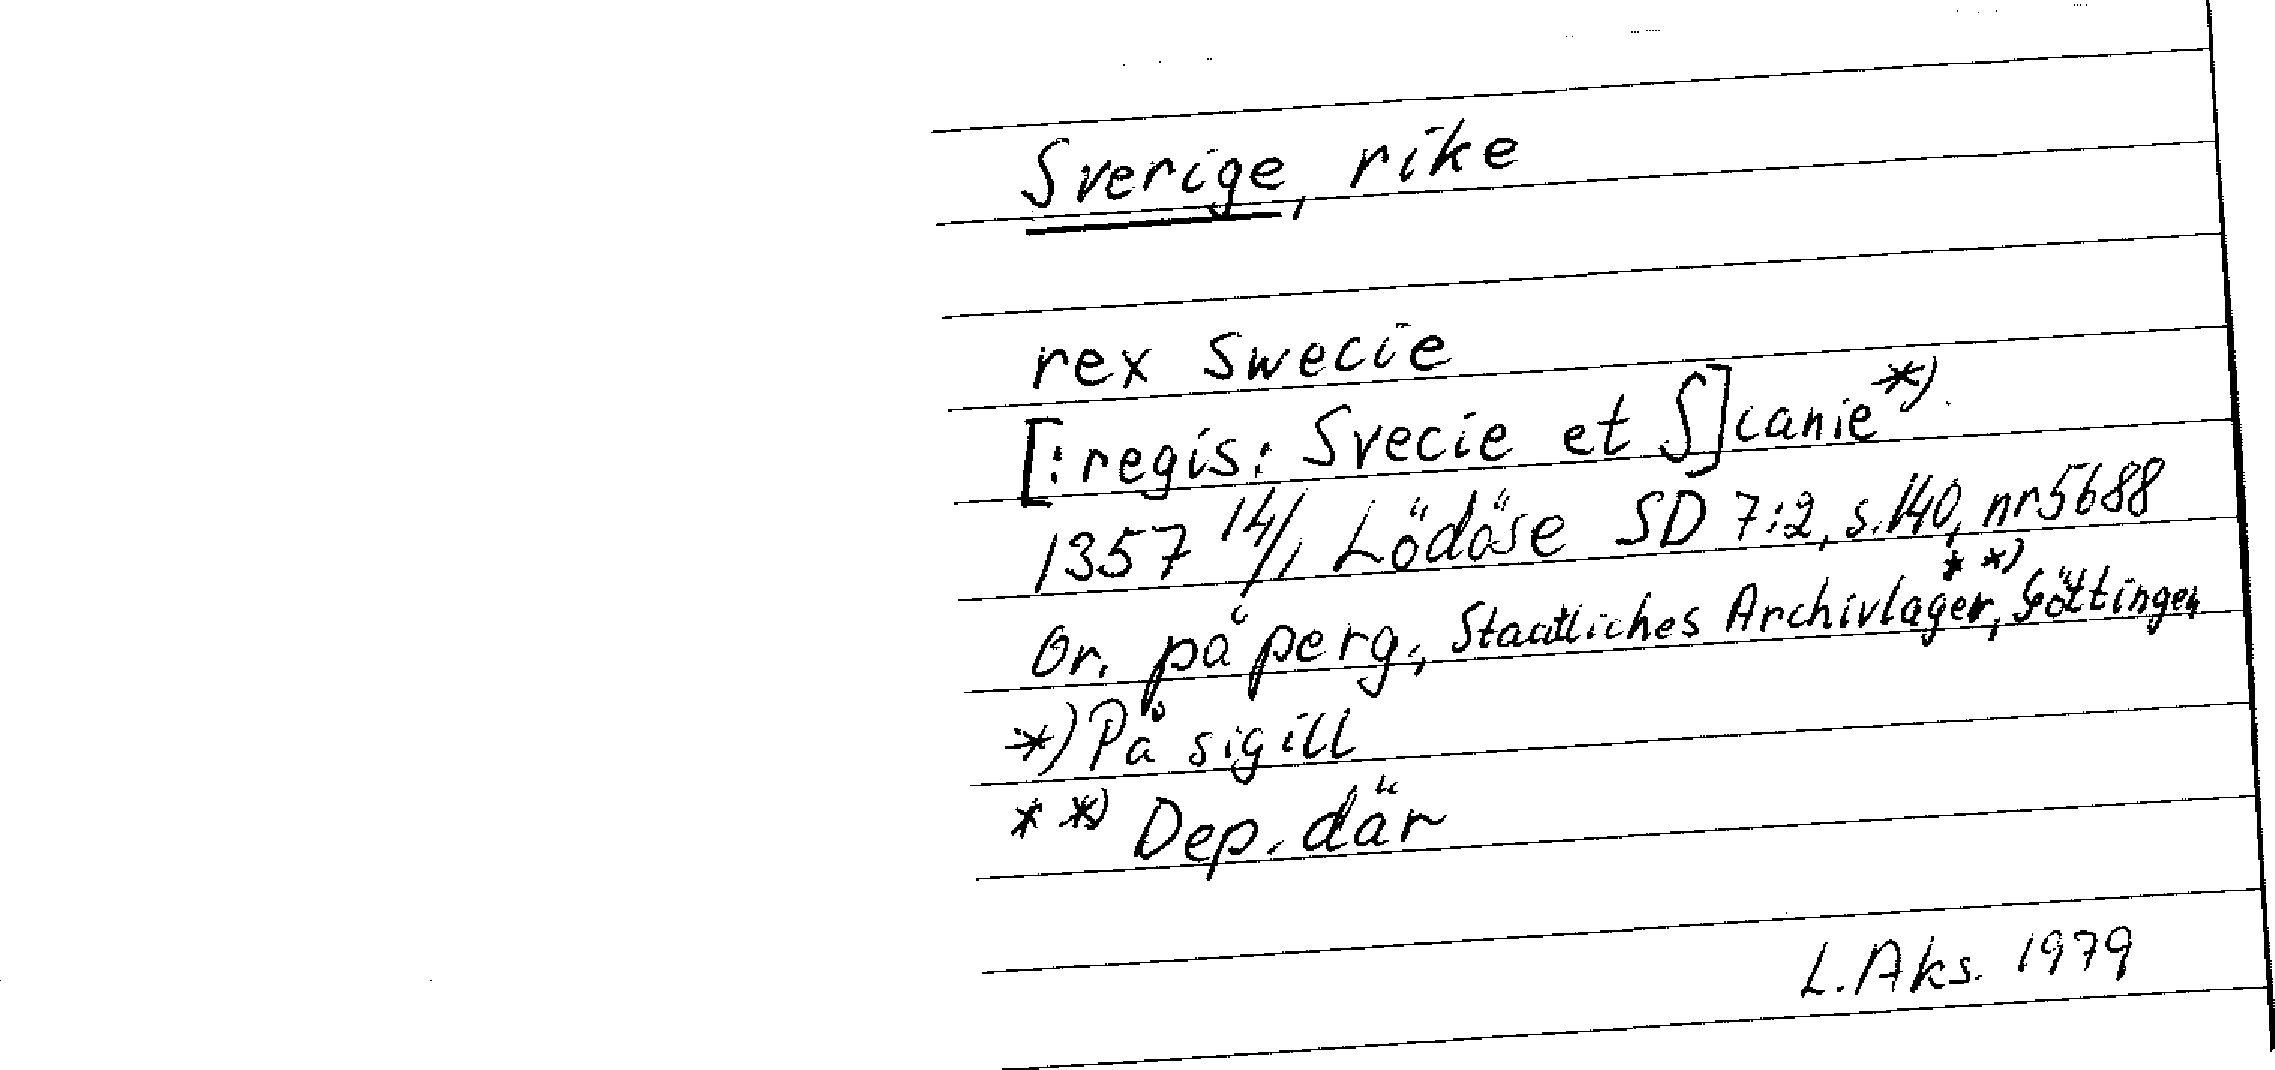 Sverige, rike
rex Swecie
[:regis: Svecie et S]canie*)
1357 14/1 Lödöse SD 7:2, s.140, nr5688
Or. på perg., Staatliches Archivlager,**) Göttingen
*) På sigill
**) Dep. där
L. Aks. 1979